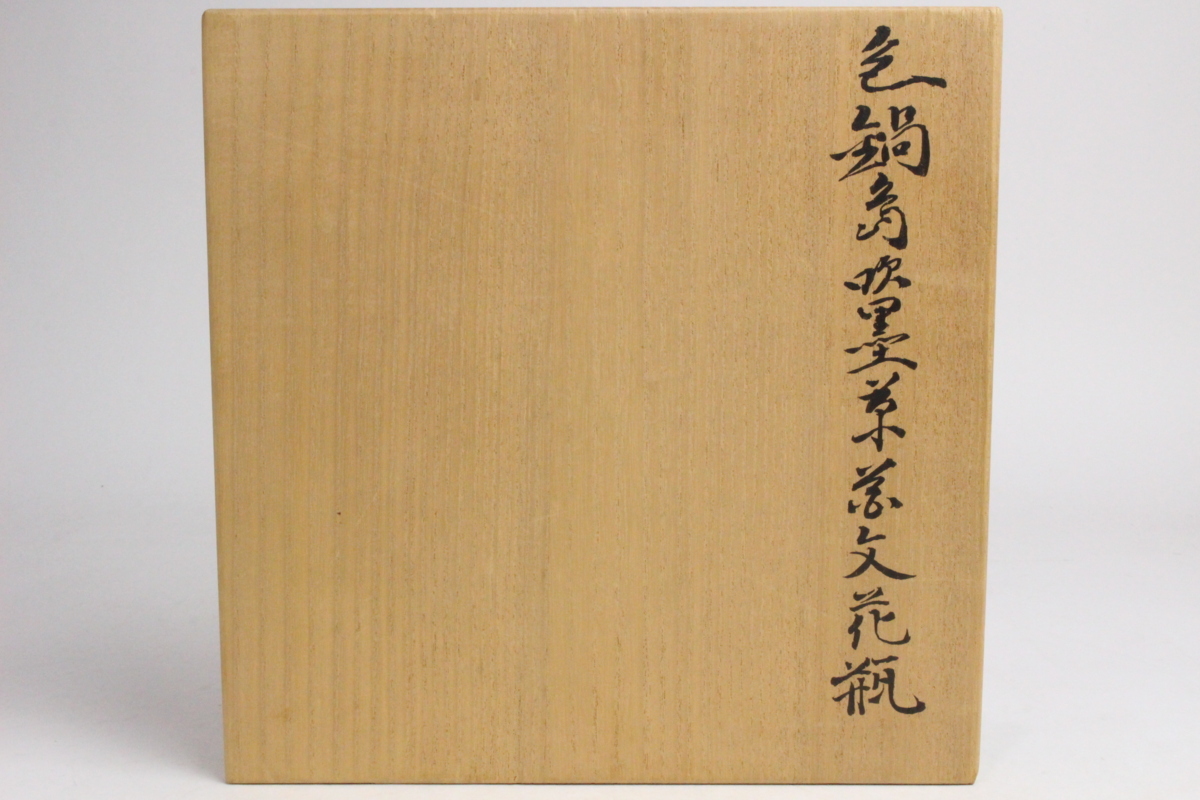 色鍋島吹墨草花文花瓶